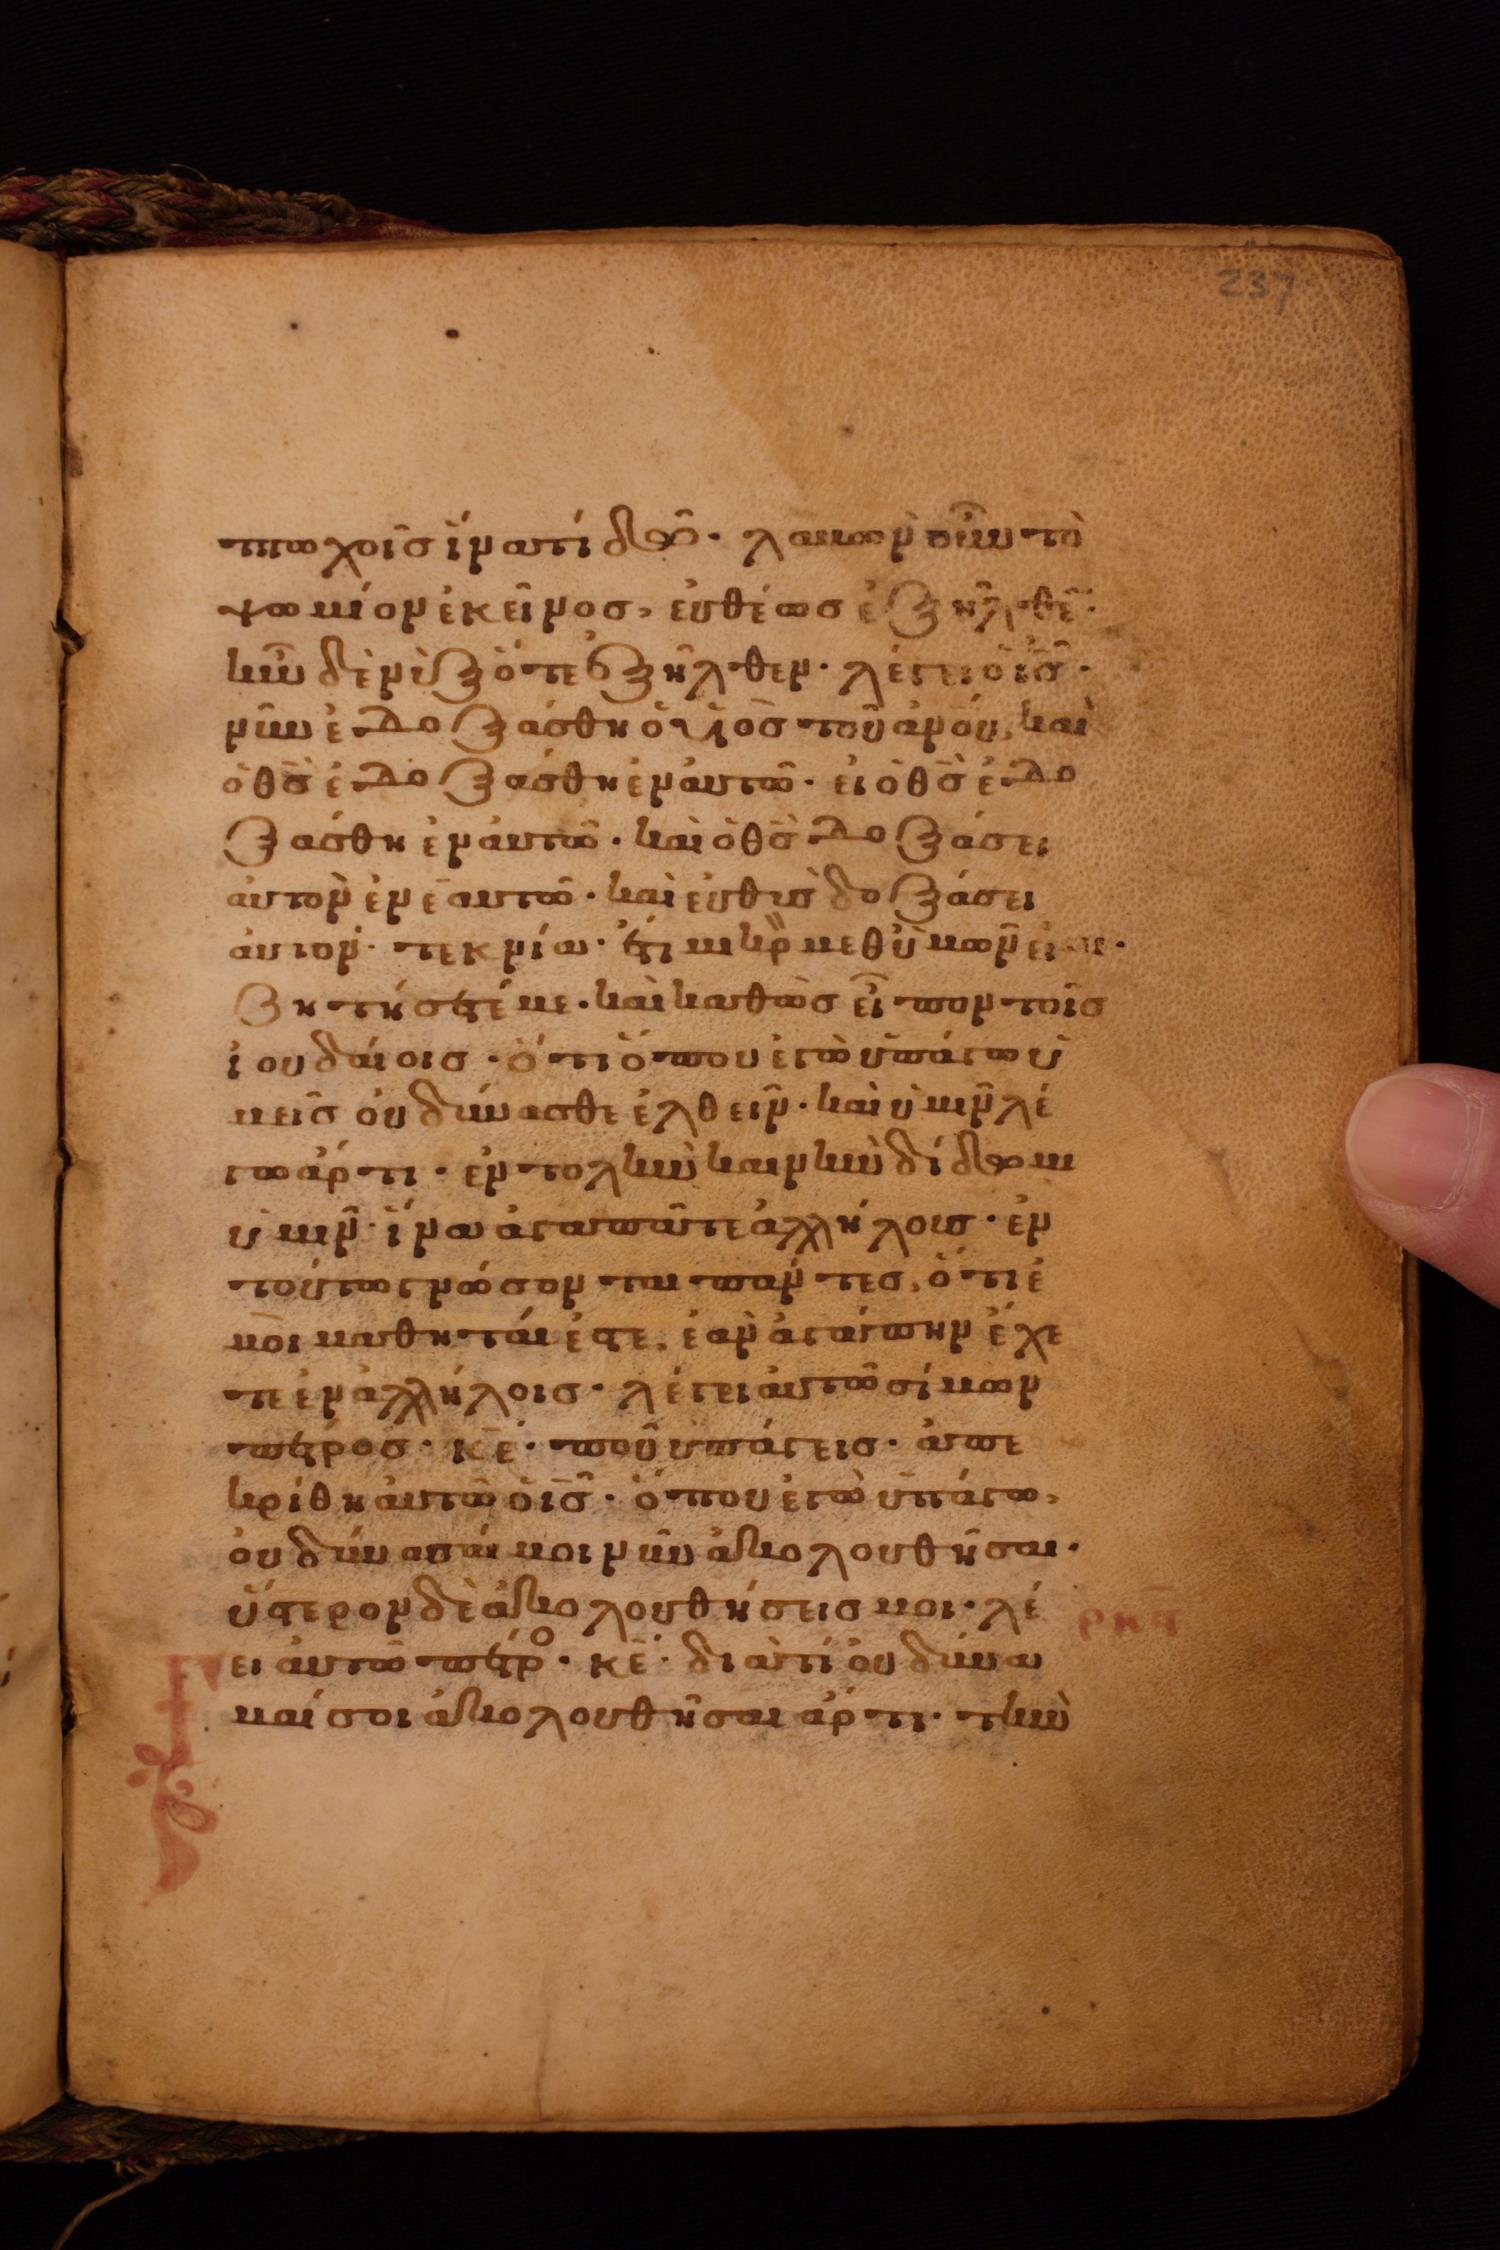 237
πτωχοῖσ ἵνα τί δῶ· λαβὼν οὖν τὸ
ψωμίον ἐκεῖνος, ἐυθέωσ ἐξῆλθε·
ἦν δὲ νὺξ ὅτε ἐξῆλθεν· λέγει ὁ ισ·
νῦν ἐδοξάσθη ὁ υἱὸσ τοῦ ἀνου, καὶ
ὁ θσ ἐδοξάσθη ἐν ἀυτῶ· ἐι ὁ θσ ἐδο
ξάσθη ἐν ἀυτῶ· καὶ ὁ θσ δοξάσει
ἀυτὸν ἐν ἑαυτῶ· καὶ ἐυθὺσ δοξάσει
ἀυτόν· τεκνία· ἔτι μικρὸν μεθ ὑμῶν εἰμι·
ζητήσετέ με· καὶ καθὼσ εἶπον τοῖσ
ἰουδάιοισ· ὅτι ὅπου ἐγὼ ὑπάγω ὑ
μεῖσ ὀυ δύνασθε ἐλθεῖν· καὶ ὑμῖν λέ
γω ἄρτι· ἐντολὴν καινὴν δίδωμι
ὑμῖν· ἵνα ἀγαπᾶτε ἀλλήλουσ· ἐν
τούτω γνώσονται πάντεσ, ὅτι ἐ
μοὶ μαθηταί ἐστε, ἐὰν ἀγάπην ἔχε
τε ἐν ἀλλήλοισ· λέγει ἀυτῶ σίμων
πέτροσ· κε· ποῦ ὑπάγεισ· ἀπε
κρίθη ἀυτῶ ὁ ισ· ὅπου ἐγὼ ὑπάγω,
ὀυ δύνασαί μοι νῦν ἀκολουθῆσαι·
ὕστερον δὲ ἀκολουθήσεισ μοι· λέ
γει ἀυτῶ πέτρο· κε· διατί ὀυ δύνα
μαί σοι ἀκολουθῆσαι ἄρτι· τὴν